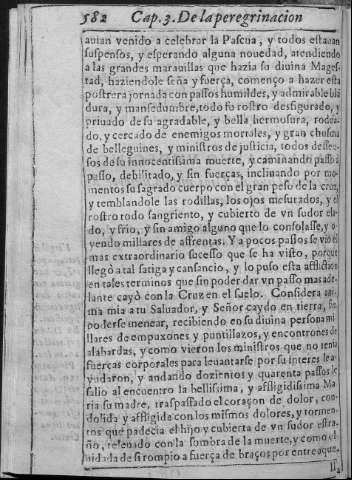 582 Cap. 3. De la peregrinacion
auian venido a celebrar la Pascua, y todos estauan
suspensos, y esperando alguna nouedad, atendiendo
a las grandes marauillas que hazia su diuina Mages-
tad, haziendole seña y fuerça, començo a hazer esta
postrera jornada con passos humildes, y admirable blã
dura, y mansedumbre, todo su rostro desfigurado, y
priuado de su agradable, y bella hermosura, rodea-
do, y cercado de enemigos mortales, y gran chusma
de belleguines, y ministros de justicia, todos desseo-
sos de su innocentissima muerte, y caminando passo a
passo, debilitado, y sin fuerças, inclinando por mo-
mentos su sagrado cuerpo con el gran peso de la cruz,
y temblandole las rodillas, los ojos mesurados, y el
rostro todo sangriento, y cubierto de vn sudor ela-
do, y frio, y sin amigo alguno que lo consolasse, y o-
yendo millares de affrentas. Y a pocos passos se vio el
mas extraordinario sucesso que se ha visto, porque
llegò a tal fatiga y cansancio, y lo puso esta afflictiõ
en tales terminos que sin poder dar vn passo mas ade-
lante cayò con la Cruz en el suelo. Considera ani-
ma mia a tu Saluador, y Señor caydo en tierra, sin
poderse menear, recibiendo en su diuina persona mi-
llares de empuxones y puntillazos, y encontrones de
alabardas, y como vieron los ministros que no tenia
fuerças corporales para leuantarse por su interes le a-
yudaron, y andando dozientos y quarenta passos le
salio al encuentro la bellissima, y affligidissima Ma
ria su madre, traspassado el coraçon de dolor, con-
dolida y affligida con los mismos dolores, y tormen-
tos que padecia el hijo y cubierta de vn sudor estra-
ño, rebuelto con la sombra de la muerte, y como
uidada de si rompio a fuerça de braços por entre aque-